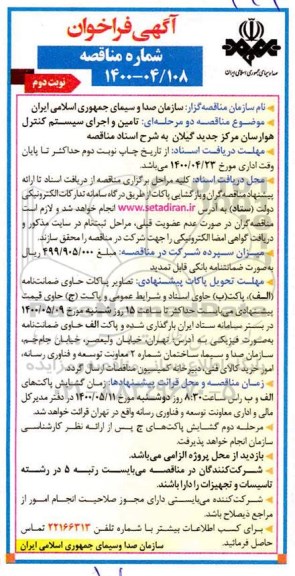 آگهی فراخوان
شماره مناقصه
۱۴۰۰-۰۴/۱۰۸
صدا و سیمای جمهوری اسلامی ایران
نوبت دوم
نام سازمان مناقصه‌گزار: سازمان صدا و سیمای جمهوری اسلامی ایران
موضوع مناقصه دو مرحله‌ای: تامین و اجرای سیستم کنترل
هوارسان مرکز جدید گیلان به شرح اسناد مناقصه
مهلت دریافت اسناد: از تاریخ چاپ نوبت دوم حداکثر تا پایان
وقت اداری مورخ ۱۴۰۰/۰۴/۲۳ می‌باشد.
محل دریافت اسناد: کلیه مراحل برگزاری مناقصه از دریافت اسناد تا ارائه
پیشنهاد مناقصه‌گران و بازگشایی پاکات از طریق درگاه سامانه تدارکات الکترونیکی
دولت (ستاد) به آدرس www.setadiran.ir انجام خواهد شد و لازم است
مناقصه‌گران در صورت عدم عضویت قبلی، مراحل ثبت‌نام در سایت مذکور و
دریافت گواهی امضا الکترونیکی را جهت شرکت در مناقصه را محقق سازند.
میزان سپرده شرکت در مناقصه: مبلغ ۴۹۹/۹۰۵/۰۰۰ ریال
به‌صورت ضمانتنامه بانکی قابل تمدید
مهلت تحویل پاکات پیشنهادی: تصاویر پاکات حاوی ضمانت‌نامه
(الف)، پاکت(ب) حاوی اسناد و شرایط عمومی و پاکت (ج) حاوی قیمت
پیشنهادی می‌بایست حداکثر تا ساعت ۱۵ روز شنبه مورخ ۱۴۰۰/۰۵/۰۹
در بستر سامانه ستاد ایران بارگذاری شده و پاکت الف حاوی ضمانت‌نامه
به‌صورت فیزیکی به آدرس: تهران، خیابان ولیعصر، خیابان جام‌جم،
سازمان صدا و سیما، ساختمان شماره ۲ معاونت توسعه و فناوری رسانه،
امور خرید کالای فنی، دبیرخانه کمیسیون مناقصات ارسال گردد.
زمان مناقصه و محل قرائت پیشنهادها: زمان گشایش پاکت‌های
الف و ب راس ساعت ۸:۳۰ روز دوشنبه مورخ ۱۴۰۰/۰۵/۱۱ در دفتر مدیرکل
مالی و اداری معاونت توسعه و فناوری رسانه واقع در تهران قرائت خواهد شد.
مرحله دوم گشایش پاکت‌های ج پس از ارائه نظر کارشناسی
سازمان انجام خواهد پذیرفت.
بازدید از محل پروژه الزامی می‌باشد.
شرکت‌کنندگان در مناقصه می‌بایست رتبه ۵ در رشته
تاسیسات و تجهیزات را دارا باشند.
شرکت‌کننده می‌بایستی دارای مجوز صلاحیت انجام امور از
مراجع ذیصلاح باشد.
برای کسب اطلاعات بیشتر با شماره تلفن ۲۲۱۶۶۳۱۳ تماس
حاصل فرمائید.
سازمان صدا وسیمای جمهوری اسلامی ایران